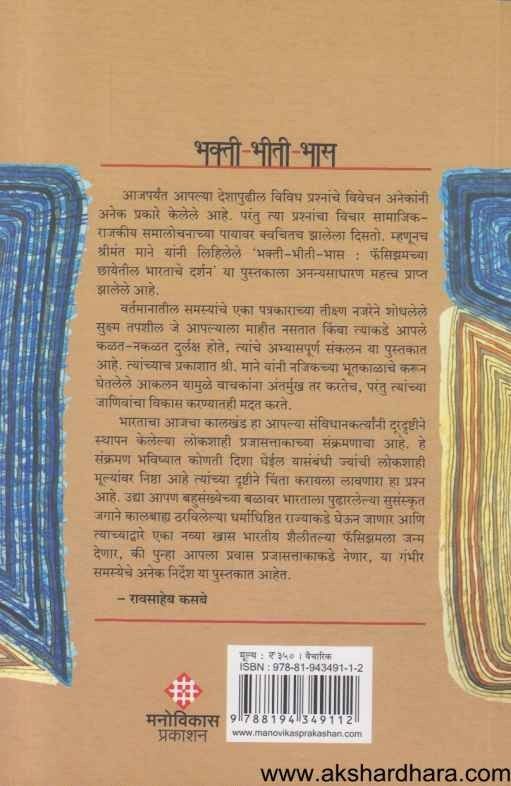 भक्ती-भीती-भास
आजपर्यंत आपल्या देशापुढील विविध प्रश्नांचे विवेचन अनेकांनी
अनेक प्रकारे केलेले आहे. परंतु त्या प्रश्नांचा विचार सामाजिक-
राजकीय समालोचनाच्या पायावर क्वचितच झालेला दिसतो. म्हणूनच
श्रीमंत माने यांनी लिहिलेले 'भक्ती-भीती-भास : फॅसिझमच्या
छायेतील भारताचे दर्शन' या पुस्तकाला अनन्यसाधारण महत्त्व प्राप्त
झालेले आहे.
वर्तमानातील समस्यांचे एका पत्रकाराच्या तीक्ष्ण नजरेने शोधलेले
सुक्ष्म तपशील जे आपल्याला माहीत नसतात किंवा त्याकडे आपले
कळत-नकळत दुर्लक्ष होते, त्यांचे अभ्यासपूर्ण संकलन या पुस्तकात
आहे. त्यांच्याच प्रकाशात श्री. माने यांनी नजिकच्या भूतकाळाचे करून
घेतलेले आकलन यामुळे वाचकांना अंतर्मुख तर करतेच, परंतु त्यांच्या
जाणिवांचा विकास करण्यातही मदत करते.
भारताचा आजचा कालखंड हा आपल्या संविधानकर्त्यांनी दूरदृष्टीने
स्थापन केलेल्या लोकशाही प्रजासत्ताकाच्या संक्रमणाचा आहे. हे
संक्रमण भविष्यात कोणती दिशा घेईल यासंबंधी ज्यांची लोकशाही
मूल्यांवर निष्ठा आहे त्यांच्या दृष्टीने चिंता करायला लावणारा हा प्रश्न
आहे. उद्या आपण बहुसंख्येच्या बळावर भारताला पुढारलेल्या सुसंस्कृत
जगाने कालबाह्य ठरविलेल्या धर्माधिष्ठित राज्याकडे घेऊन जाणार आणि
त्याच्याद्वारे एका नव्या खास भारतीय शैलीतल्या फॅसिझमला जन्म
देणार, की पुन्हा आपला प्रवास प्रजासत्ताकाकडे नेणार, या गंभीर
समस्येचे अनेक निर्देश या पुस्तकात आहेत.
– रावसाहेब कसबे
मूल्य : ₹ ३५० । वैचारिक
ISBN : 978-81-943491-1-2
9 788194 349112
www.manovikasprakashan.com
मनोविकास
प्रकाशन
www.akshardhara.com